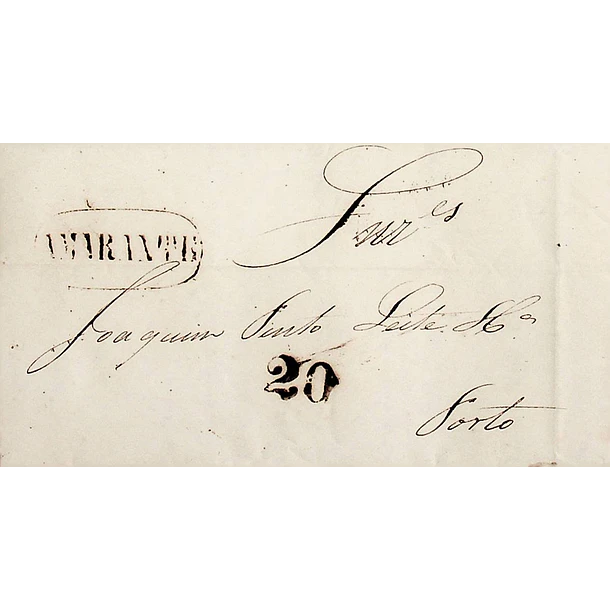 AMARANTE
Snres
Joaquim Pinto Leite Fos
20
Porto